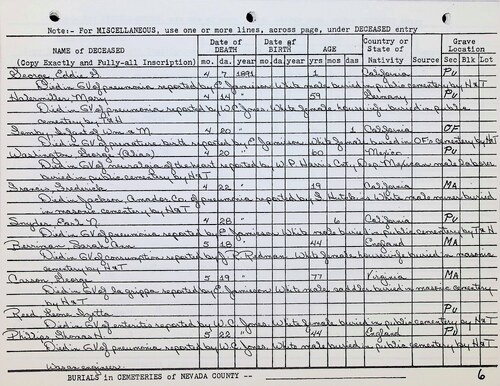 Note:- For MISCELLANEOUS, use one or more lines, across page, under DECEASED entry
NAME of DECEASED (Copy Exactly and Fully-all Inscription) Date of DEATH mo. da. year Date of BIRTH mo. da. yrs AGE yrs mos das Country or State of Nativity Source Grave Location Sec Blk Lot
George, Eddie G 4 7 1891 1 California Pu
Died in GV of pneumonia reported by C Jamison White male buried in public cemetery by H&T
Mary 4 14 " 59 Germany Pu
Died in GV of pneumonia reported by W.C. Jones White female housewife buried in public
cemetery by T&H
of Wm & M 4 20 " 1 California OF
Died in GV of premature birth reported by C Jamison White female buried in OF's cemetery by H&T
Washington, George (Alias) 4 20 " 60 Mexico Pu
Died in GV of of the heart reported by W.P. Harris Cor, Dep Mexican male laborer
buried in public cemetery by H&T
Francis, Frederick 4 22 " 19 California MA
Died in Jackson, Amador Co. of pneumonia reported by White male miner buried
in masonic cemetery by H&T
Snyder, Earl N 4 28 " 6 California Pu
Died in GV of pneumonia reported by C Jamison White male buried in public cemetery by T&H
Berriman, Sarah Ann 5 18 " 44 England MA
Died in GV of consumption reported by J.P. Redman White female housewife buried in masonic
cemetery by H&T
Carson, George 5 19 " 77 Virginia MA
Died in GV of la grippe reported by C Jamison White male buried in masonic cemetery
by H&T
Reed, Isetta " Pu
Died in GV of enteritis reported by W.C. Jones White female buried in public cemetery by H&T
Phillips, Thomas H. 5 22 " 44 England Pu
Died in GV of pneumonia reported by W.C. Jones. White male buried in public cemetery by H&T
Was an engineer
BURIALS in CEMETERIES of NEVADA COUNTY -- 6